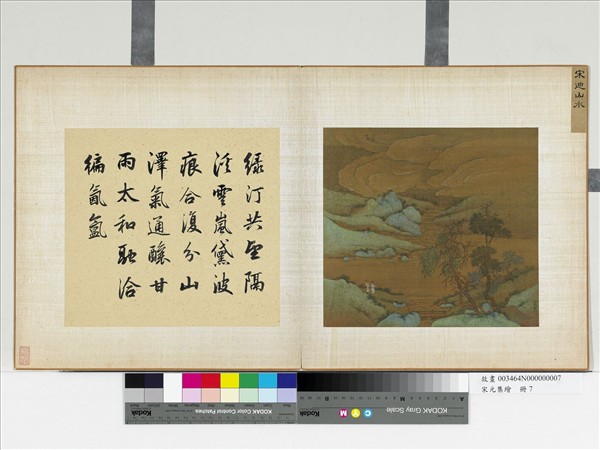 宋迪山水
綠汀共望隔
溪雲嵐黛波
痕合復分山
澤氣通釀甘
雨太和融洽
徧氤氳
故畫 003464N000000007
宋元集繪 冊 7
KODAK Color Control Patches
KODAK Gray Scale